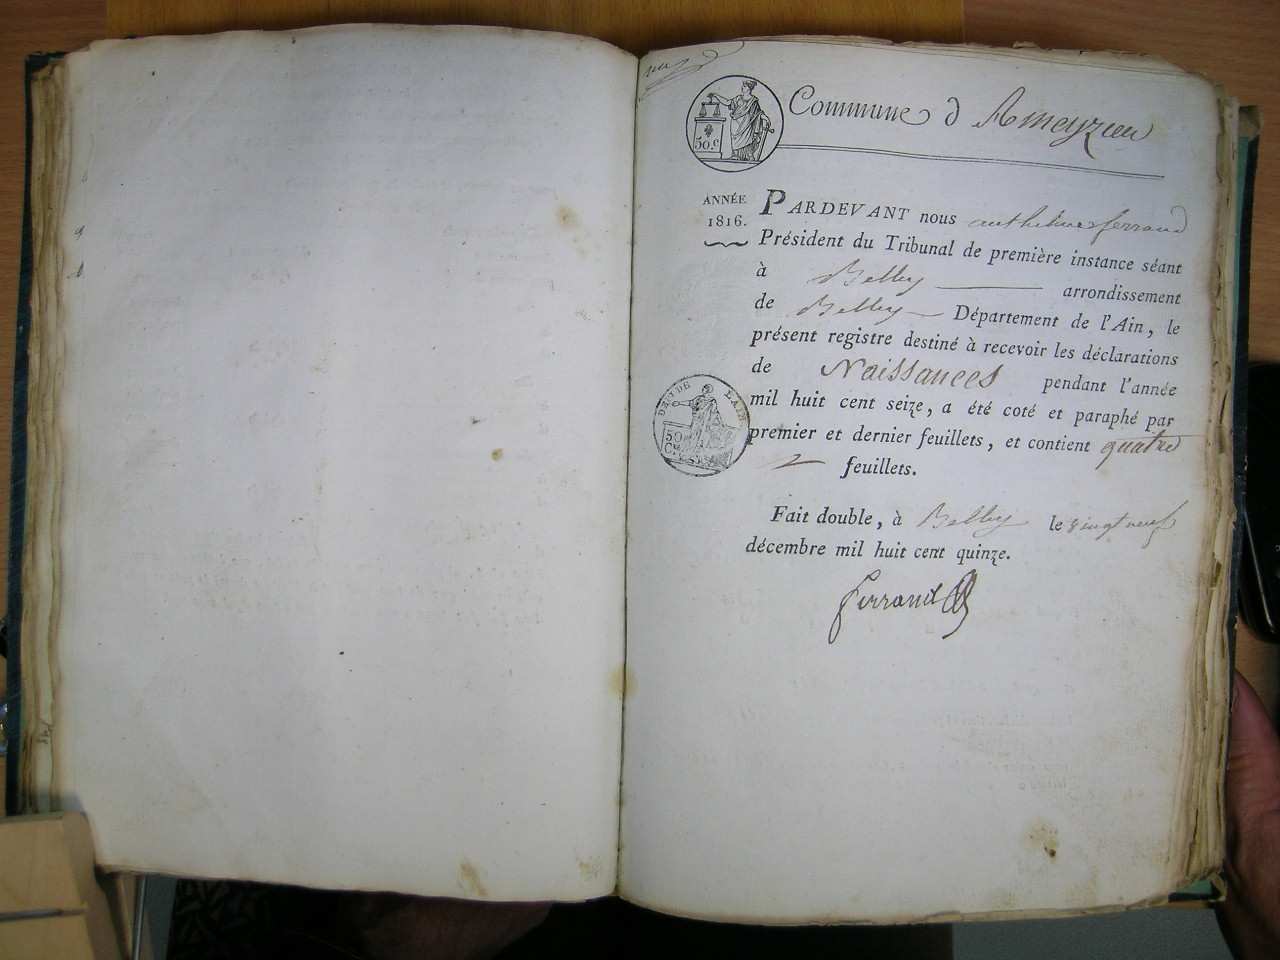 Commune d Ameyzieu
50.c
ANNÉE
1816.
PARDEVANT nous anthelme ferrand
Président du Tribunal de première instance séant
à Belley arrondissement
de Belley Département de l'Ain, le
présent registre destiné à recevoir les déclarations
de Naissances pendant l'année
mil huit cent seize, a été coté et paraphé par
premier et dernier feuillets, et contient quatre
feuillets.
DE L'AIN
50
Fait double, à Belley le vingt neuf
décembre mil huit cent quinze.
ferrand